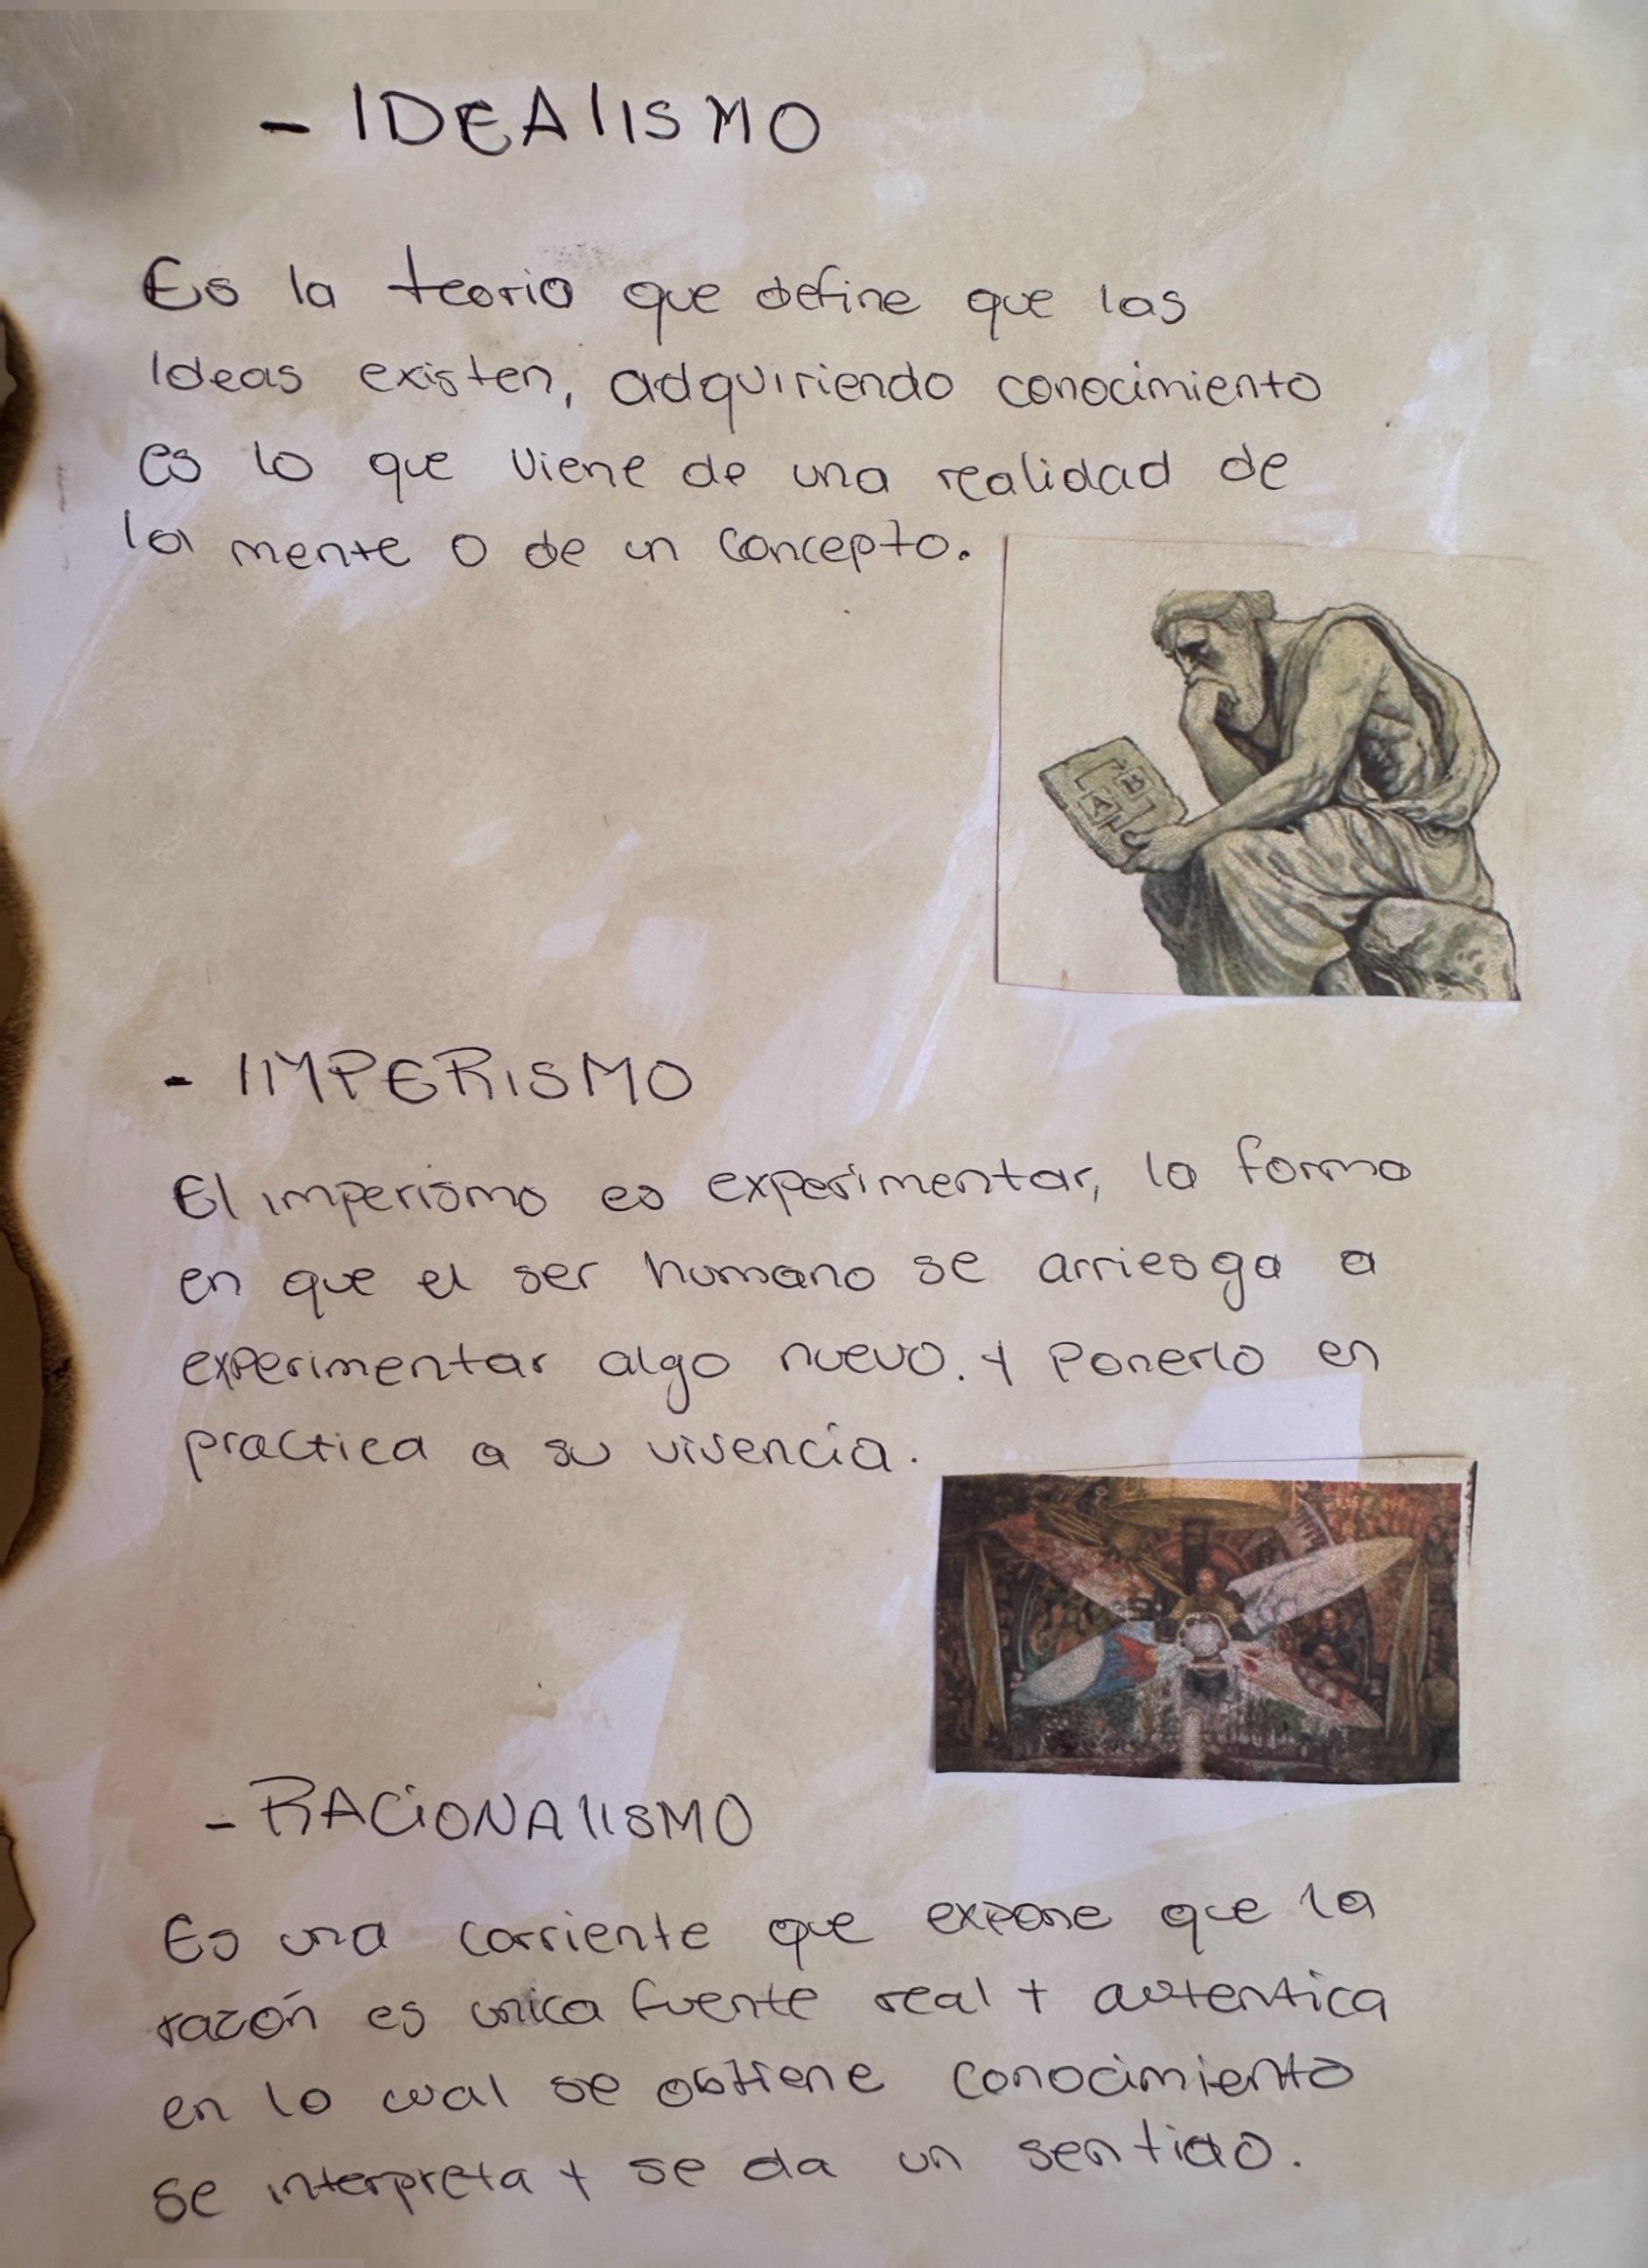 - IDEAlISMO
Es la teoria que define que las
Ideas existen, adquiriendo conocimiento
es lo que viene de una realidad de
la mente o de un concepto.
B
A
- IMPERISMO
El imperismo es experimentar, la forma
en que el ser humano se arriesga a
experimentar algo nuevo. y ponerlo en
practica a su vivencia.
- RACiONAlISMO
Es una corriente que expone que la
razón es unica fuente real y autentica
en lo cual se obtiene conocimiento
se interpreta y se da un sentido.